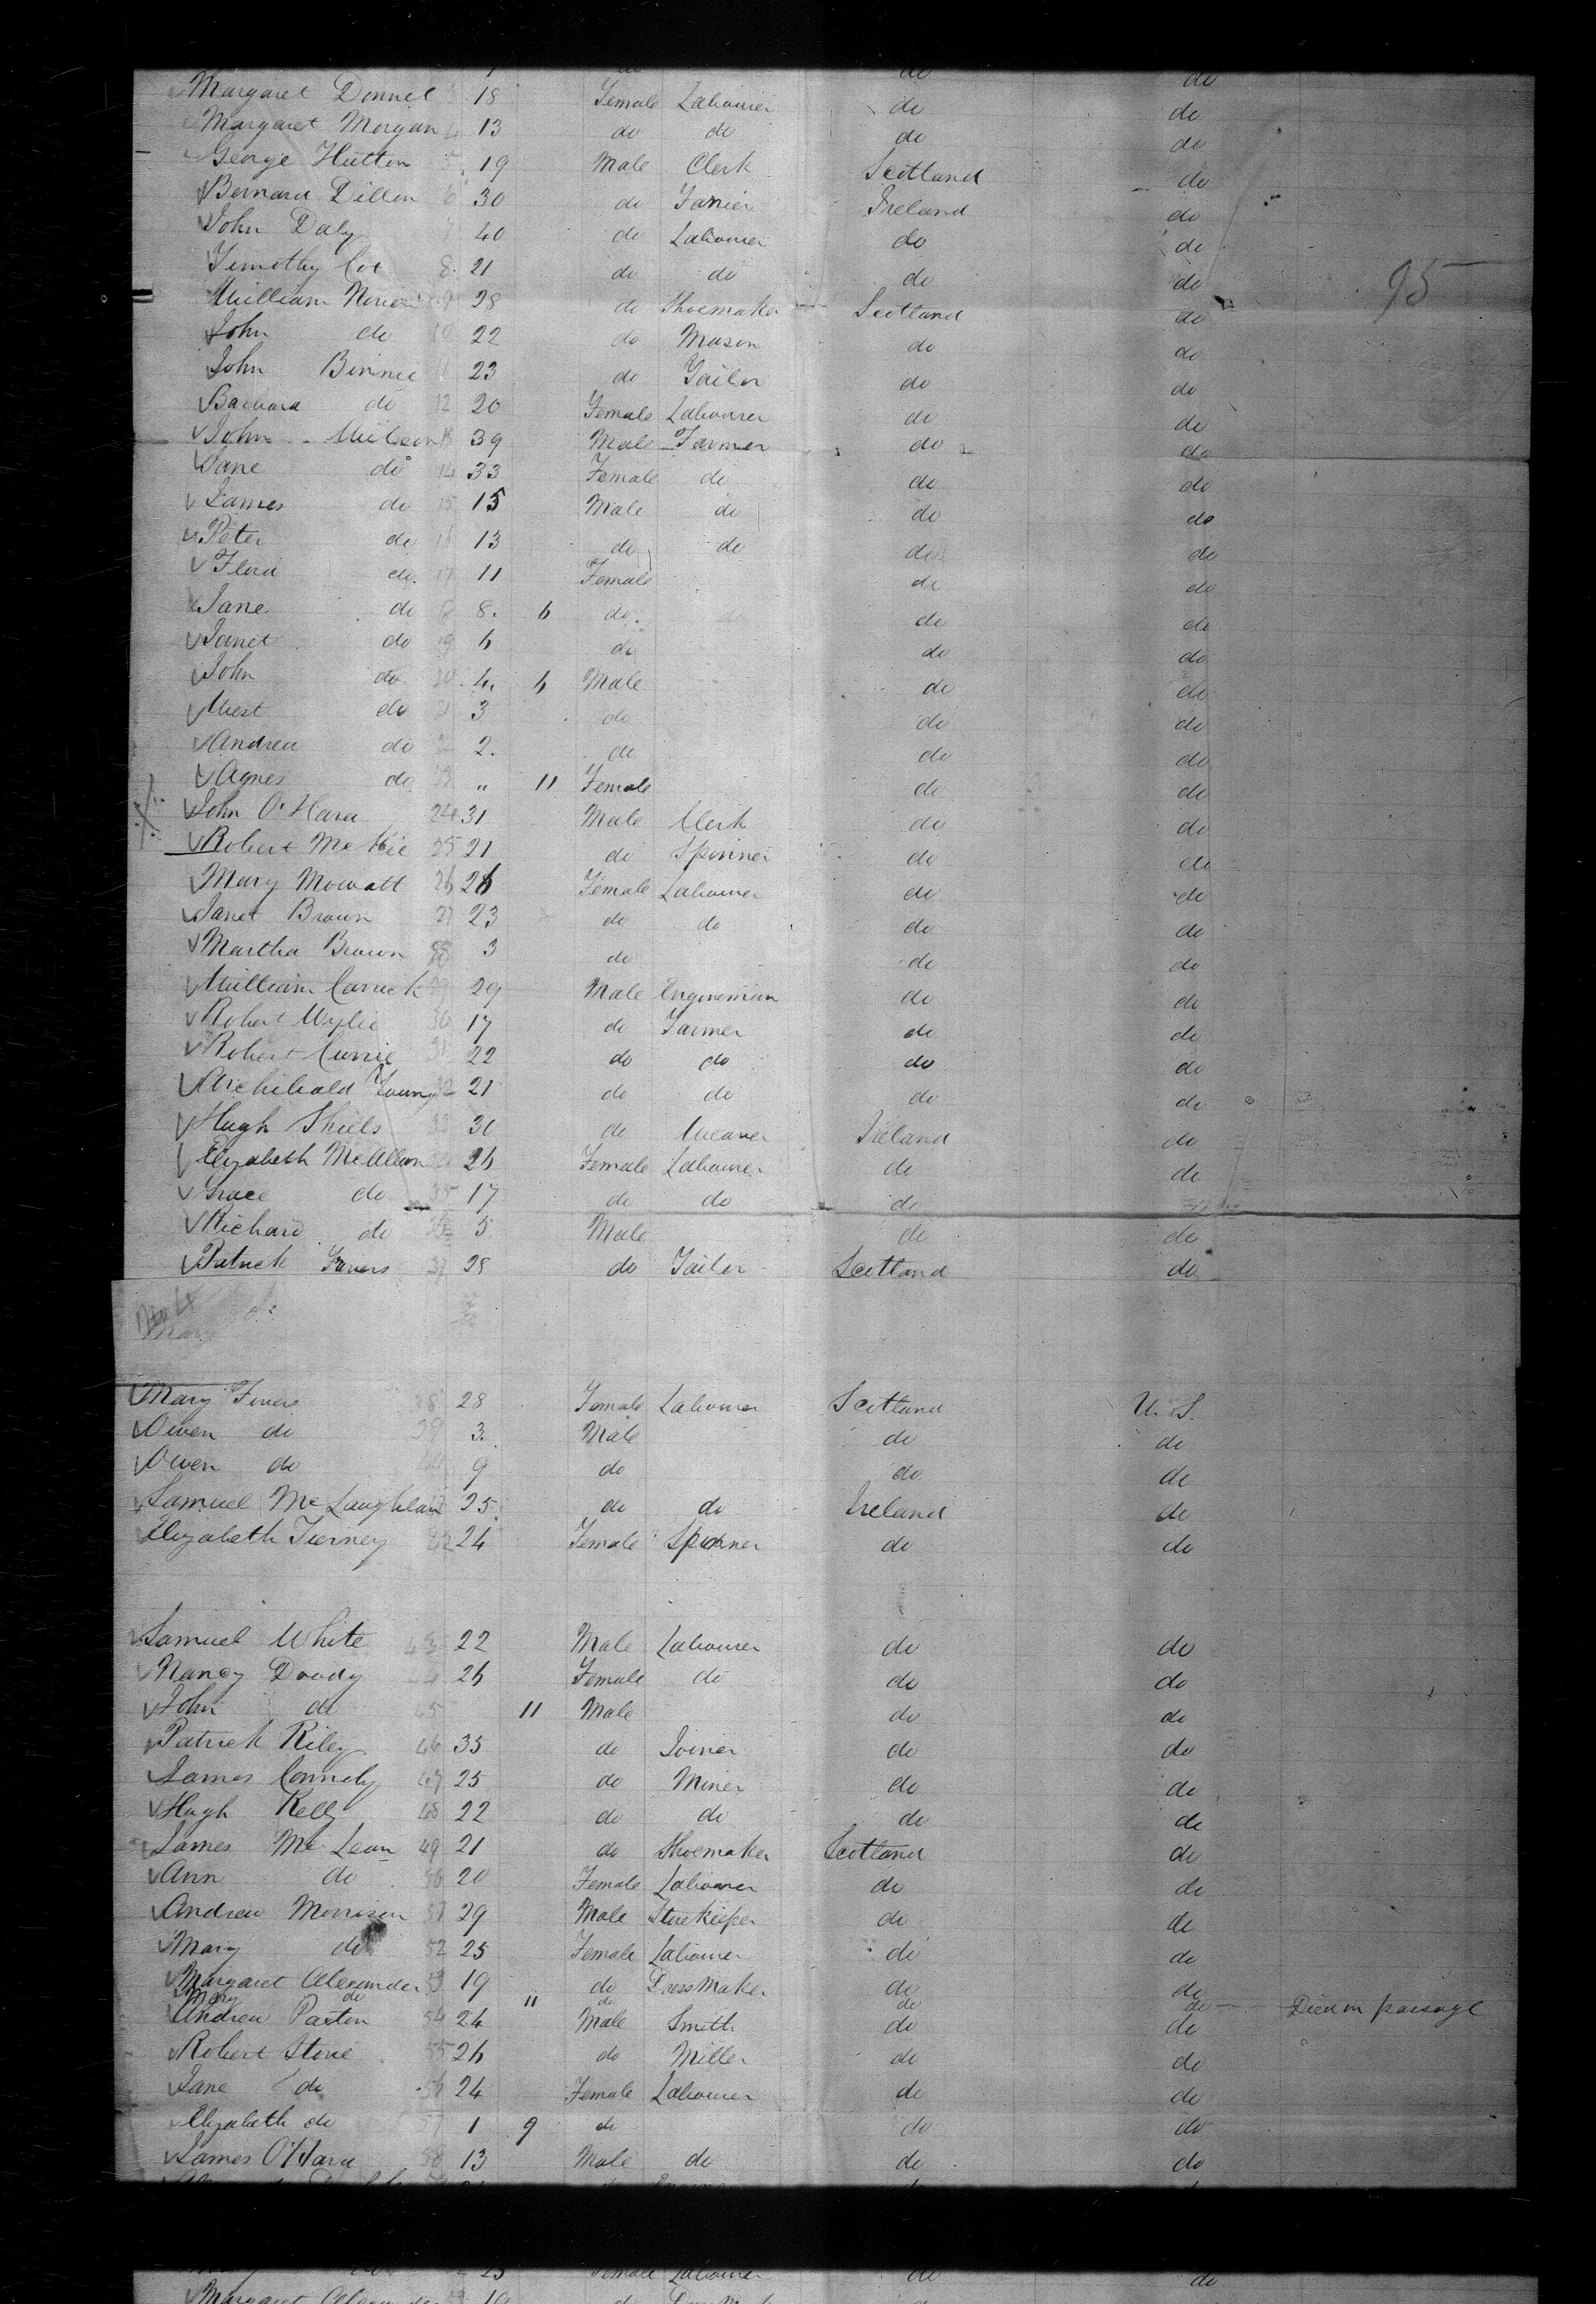 do do do
Margaret Donnel 18 Female Labourer do do
Margaret Morgan 13 do do do do
George Hutton 5 19 Male Clerk Scotland do
Bernard Dillon 6 30 do Ireland do
John Daly 7 40 do Labourer do do
Timothy Coe 8 21 do do do do
95
William 9 28 do Shoemaker Scotland do
John do 10 22 do Mason do do
John Binnie 11 23 do Tailor do do
Barbara do 12 20 Female Labourer do do
John Wilson 13 39 Male Farmer do do
Jane do 14 33 Female do do do
James do 15 15 Male do do do
Peter do 16 13 do do do do
Flora do 17 11 Female do do
Jane do 8 8 6 do do do
Janet do 19 6 do do do
John do 20 4 6 Male do do
West do 21 3 do do do
Andrew do 2 2 do do do
Agnes do 23 " 11 Female do do
John O'Hara 24 31 Male Clerk do do
Robert McKie 25 21 do Spinner do do
Mary Mowatt 26 26 Female Labourer do do
Janet Brown 27 23 do do do do
Martha Brown 28 3 do do do
William Carrick 29 29 Male Engineman do do
Robert Wylie 30 17 do Farmer do do
Robert Currie 31 22 do do do do
Archibald Young 32 21 do do do do
Hugh Shiels 33 30 do Weaver Ireland do
Elizabeth McAllan 26 Female Labourer do do
Grace do 35 17 do do do
Richard do 36 5 Male do do
Patrick 37 28 do Tailor Scotland do
Mary 38 28 Female Labourer Scotland U.S.
Owen do 39 3 Male do do
Owen do 9 do do do
Samuel McLaughlan 25 do do Ireland do
Elizabeth Tierney 42 24 Female Spinner do do
Samuel White 43 22 Male Labourer do do
Nancy Doody 26 Female do do do
John do 45 11 Male do do
Patrick Riley 46 35 do Joiner do do
James Connely 47 25 do Miner do do
Hugh Kelly 48 22 do do do do
James McLean 49 21 do Shoemaker Scotland do
Ann do 50 20 Female Labourer do do
Andrew Morrison 51 29 Male Storekeeper do do
Mary do 52 25 Female Labourer do do
Margaret Alexander 53 19 do Dressmaker do do
Mary do 11 do do do Died on passage
Andrew Paxton 54 24 Male Smith do do
Robert Stone 55 26 do Miller do do
Jane do 56 24 Female Labourer do do
Elizabeth do 57 1 9 do do do
James O'Hara 58 13 Male do do do
do do
do 25 Female Labourer do do
Margaret 19 do